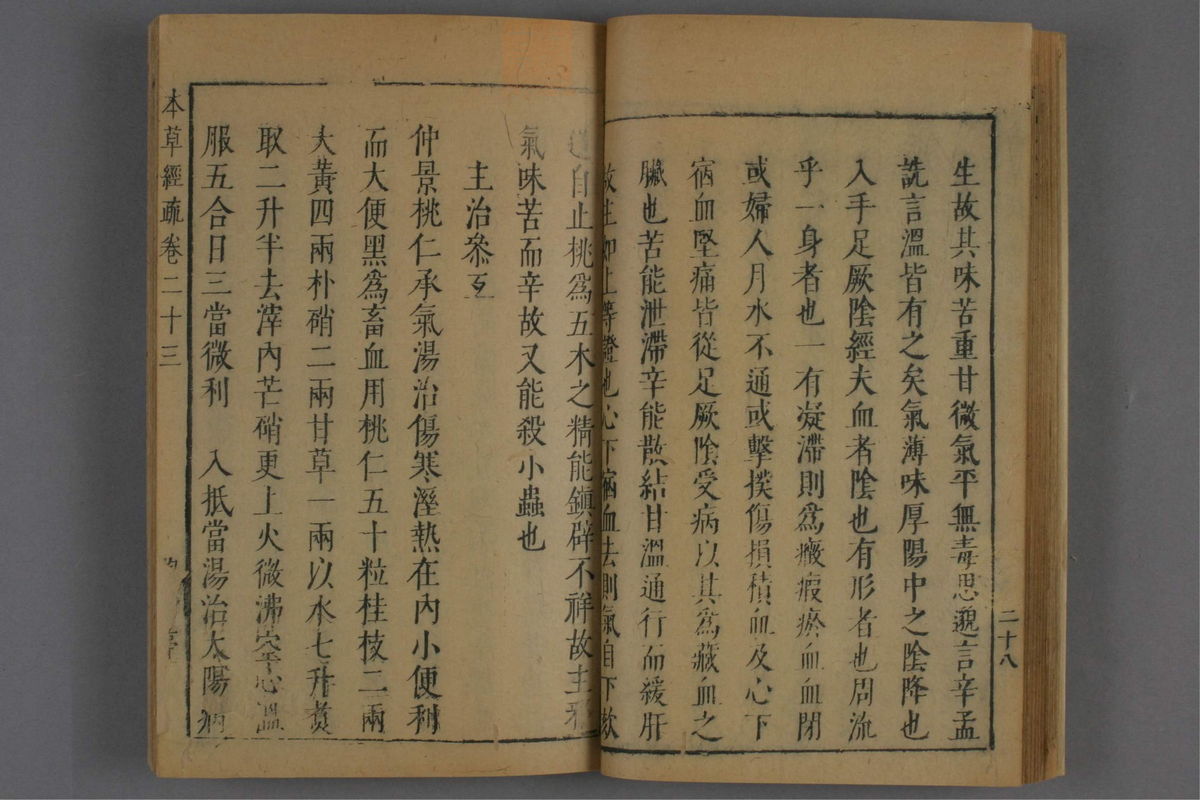 二十八
生故其味苦重甘微氣平無毒思邈言辛孟
詵言溫皆有之矣氣薄味厚陽中之陰降也
入手足厥陰經夫血者陰也有形者也周流
乎一身者也一有凝滯則爲癥瘕瘀血血閉
或婦人月水不通或擊撲傷損積血及心下
宿血堅痛皆從足厥陰受病以其爲藏血之
臟也苦能泄滯辛能散結甘溫通行而緩肝
故主如上等證也心下宿血去則氣自下欬
逆自止桃爲五木之精能鎮辟不祥故主邪
氣味苦而辛故又能殺小蟲也
主治叅互
仲景桃仁承氣湯治傷寒溼熱在內小便利
而大便黑爲畜血用桃仁五十粒桂枝二兩
大黃四兩朴硝二兩甘草一兩以水七升煑
取二升半去滓內芒硝更上火微沸空心溫
服五合日三當微利 入抵當湯治太陽病
本草經疏卷二十三